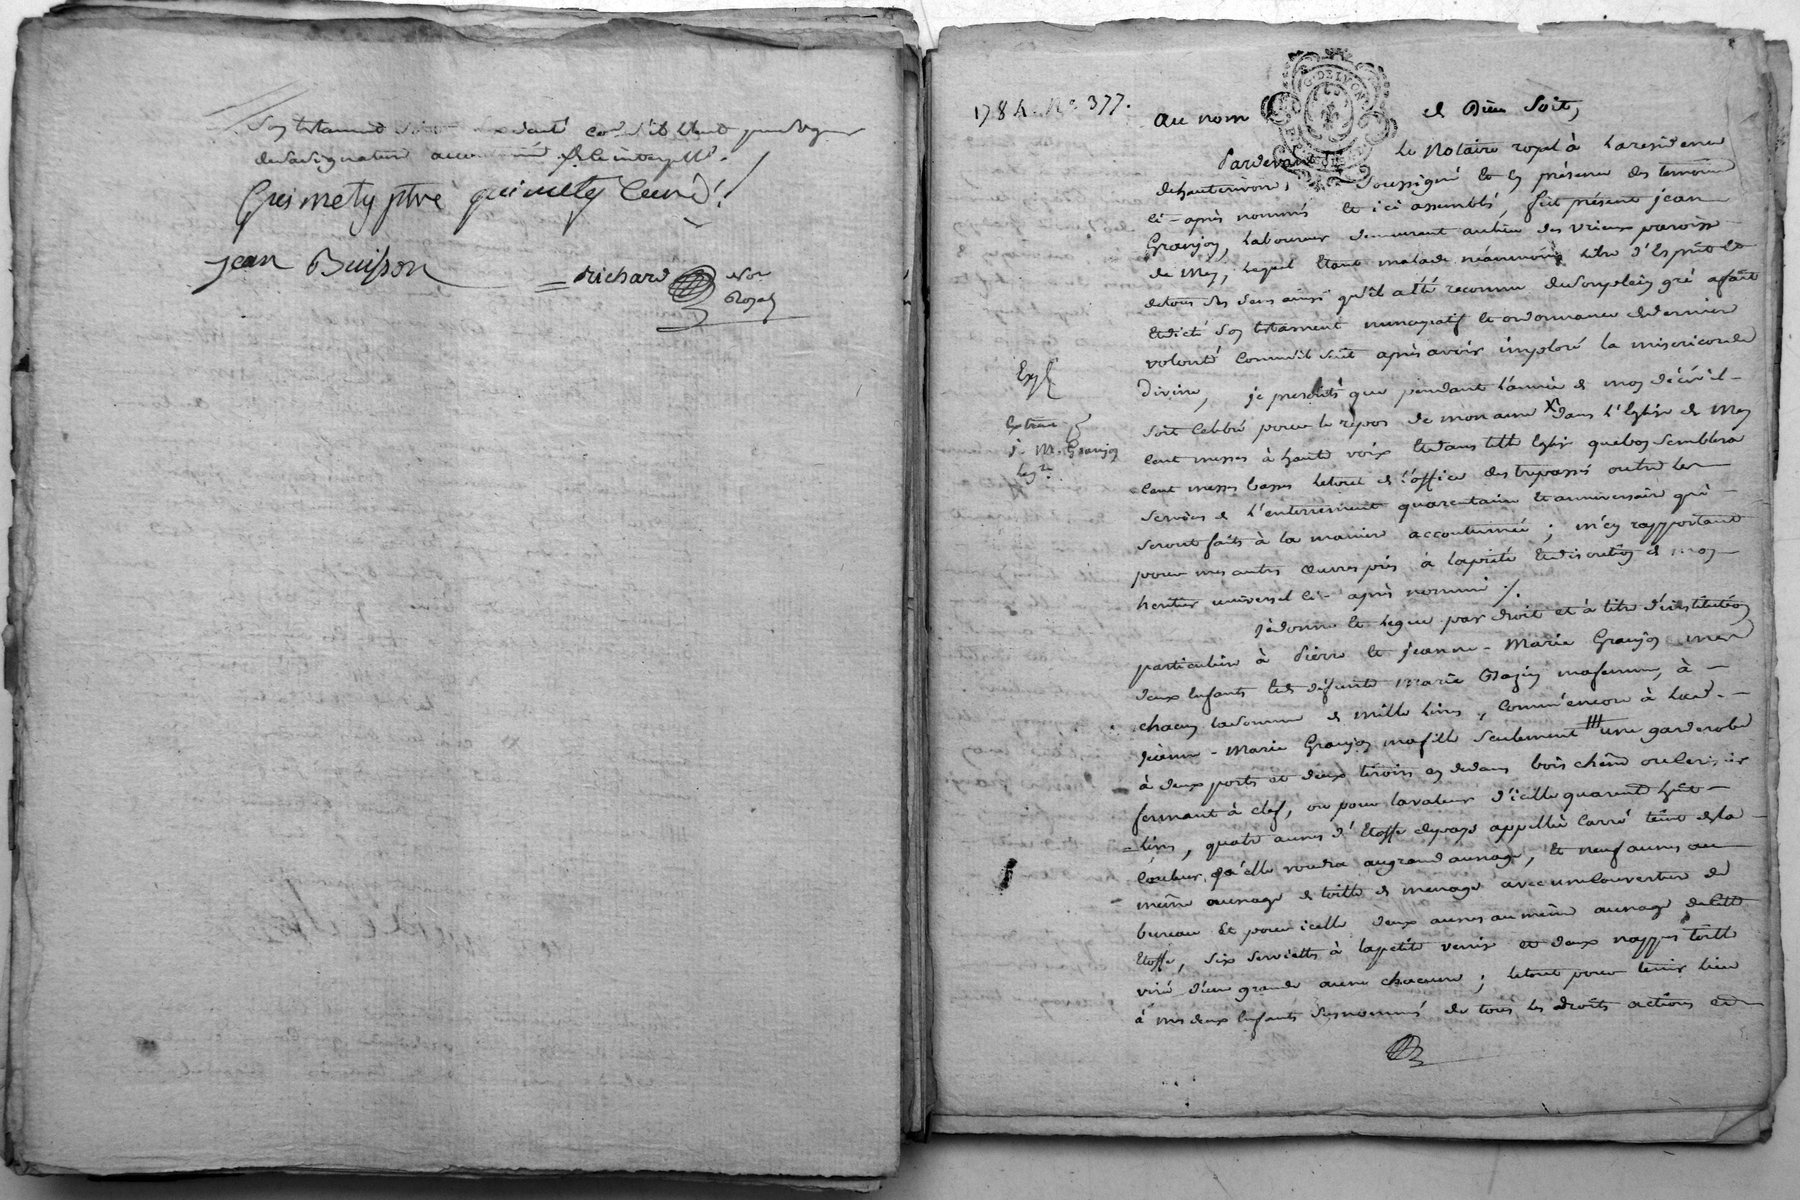 Son testament
de sa signature accoutumée de ce interpellé.
Guimety ptre guimety Curé!
jean Buisson
Richard Nore
Royal
1784. No. 377.
G. DE LYON
Au nom de Dieu Soit,
Pardevant le Notaire royal à la residence
de hauterivoire, Soussigné et en présence des temoins
ci-après nommés et ici assemblés, fut présent jean
Granjon, laboureur demeurant au lieu des vrieux paroisse
de Mey, lequel étant malade néanmoins libre d'Esprit et
de tous ses sens ainsi qu'il a été reconnu de son plein gré a fait
et dicté son testament nuncupatif et ordonnance de derniere
volonté comme il suit après avoir imploré la misericorde
Divine, je prescrits que pendant l'année de mon décès il
soit celebré pour le repos de mon ame X dans l'Eglise de Mey
cent messes à haute voix et dans telle Eglise que bon semblera
cent messes basses le tout de l'office des trepassés outre les
services de l'enterrement quarantaine et anniversaire qui
seront faits à la maniere accoutumée; m'en rapportant
pour mes autres œuvres pies à la pieté et discretion de mon
heritier universel ci-après nommé ./.
Exp
Extrait
j. M. Granjon
leg.re
je donne et legue par droit et à titre d'institution
particuliere à Pierre et jeanne-Marie Granjon mes
deux enfants et de défunte Marie Bazin ma femme, à
chacun la somme de mille livres, comm'encore à lad.
jeanne-Marie Granjon ma fille seulement III une garderobe
à deux portes et deux tiroirs en dedans bois chêne ou cerisier
fermant à clef, ou pour la valeur d'icelle quarante huit
livres, quatre aunes d'étoffe du pays appellée carré teint de la
couleur qu'elle voudra au grand aunage, et neuf aunes au
même aunage de toille de menage avec une couverture de
bureau et pour icelle deux aunes au même aunage de telle
étoffe, six serviettes à la petite venise et deux nappes toille
virié d'une grande aune chacune; le tout pour tenir lieu
à mes deux enfants susnommés de tous les droits actions et